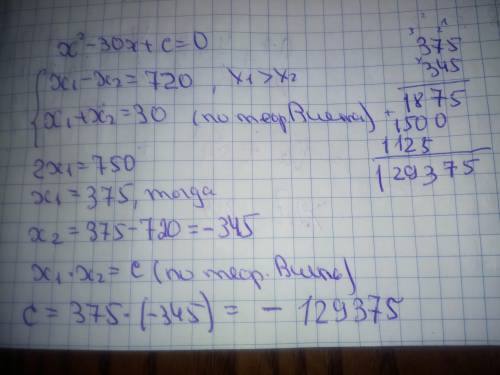 x² - 30x + c = 0
{ x₁ - x₂ = 720 , x₁ > x₂
x₁ + x₂ = 30 (по теор. Виета)
2x₁ = 750
x₁ = 375, тогда
x₂ = 375 - 720 = -345
x₁ · x₂ = c (по теор. Виета)
c = 375 · (-345) = - 129375
375
× 345
1875
+ 1500
1125
129375